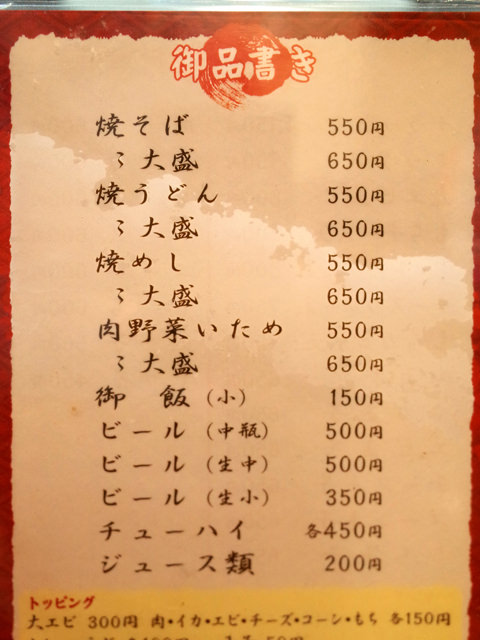 御品書き
焼そば 550円
〃大盛 650円
焼うどん 550円
〃大盛 650円
焼めし 550円
〃大盛 650円
肉野菜いため 550円
〃大盛 650円
御 飯(小) 150円
ビール(中瓶) 500円
ビール(生中) 500円
ビール(生小) 350円
チューハイ 各450円
ジュース類 200円
トッピング
大エビ 300円 肉・イカ・エビ・チーズ・コーン・もち 各150円